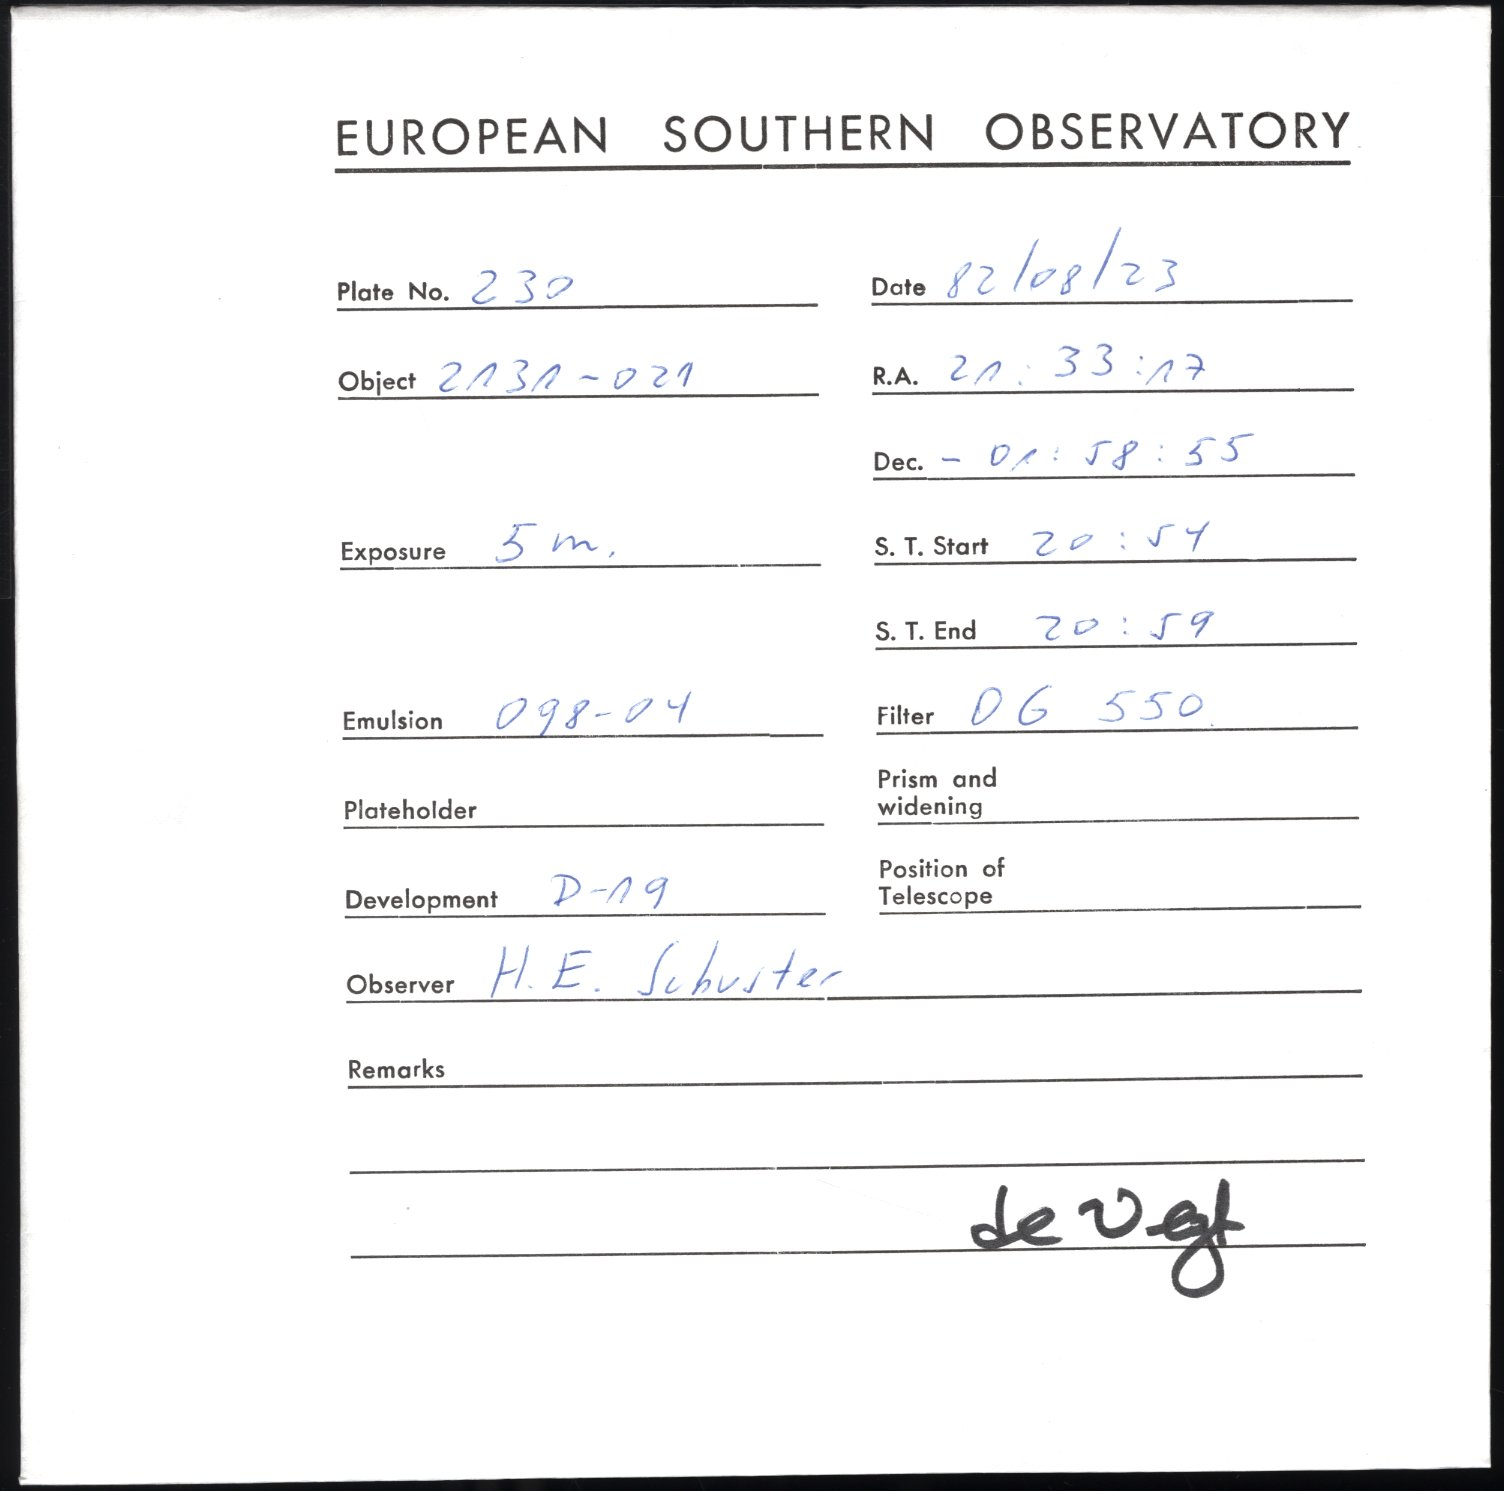 EUROPEAN SOUTHERN OBSERVATORY
Plate No. 230
Date 82/08/23
Object 2131-021
R.A. 21:33:17
Dec. - 01:58:55
Exposure 5 m.
S. T. Start 20:54
S. T. End 20:59
Emulsion 098-04
Filter OG 550
Plateholder
Prism and
widening
Development D-19
Position of
Telescope
Observer H. E. Schuster
Remarks
de Vegt